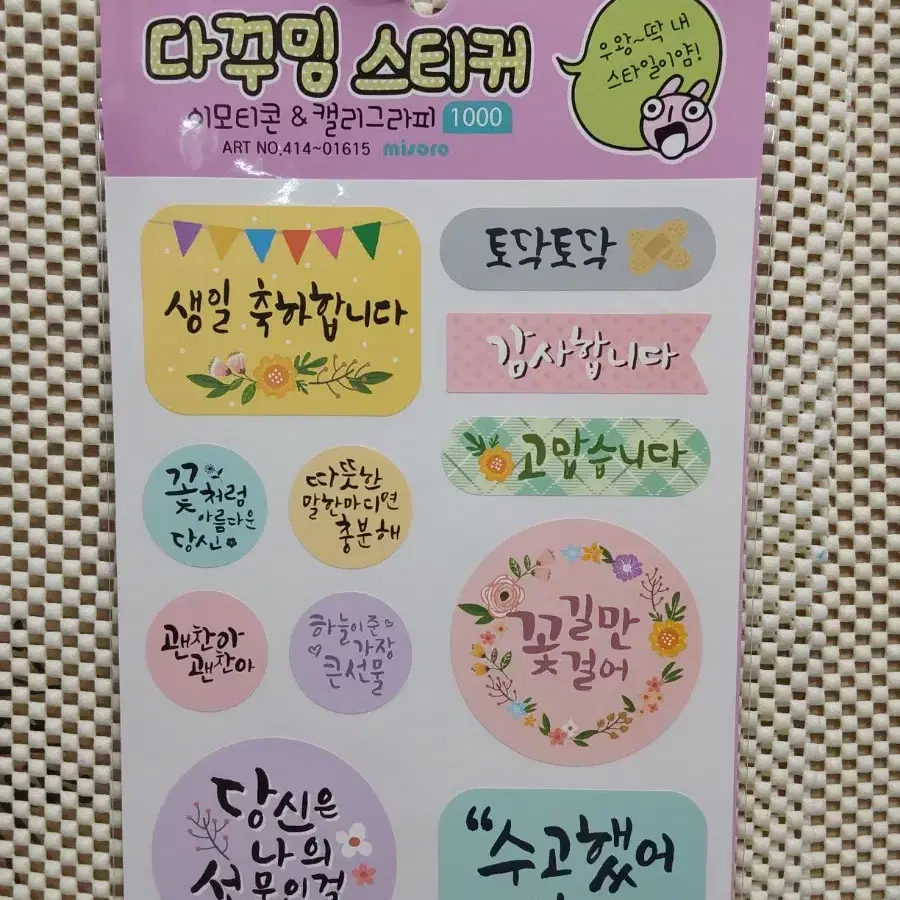 다꾸밍 스티커
이모티콘 & 캘리그라피 1000
ART NO.414-01615 misoro
우왕~딱 내
스타일이얌!
생일 축하합니다
토닥토닥
감사합니다
고맙습니다
꽃처럼
아름다운
당신
따뜻한
말한마디면
충분해
괜찬아
괜찬아
하늘이준
가장
큰선물
꽃길만
걸어
당신은
나의
선물인걸
"수고했어